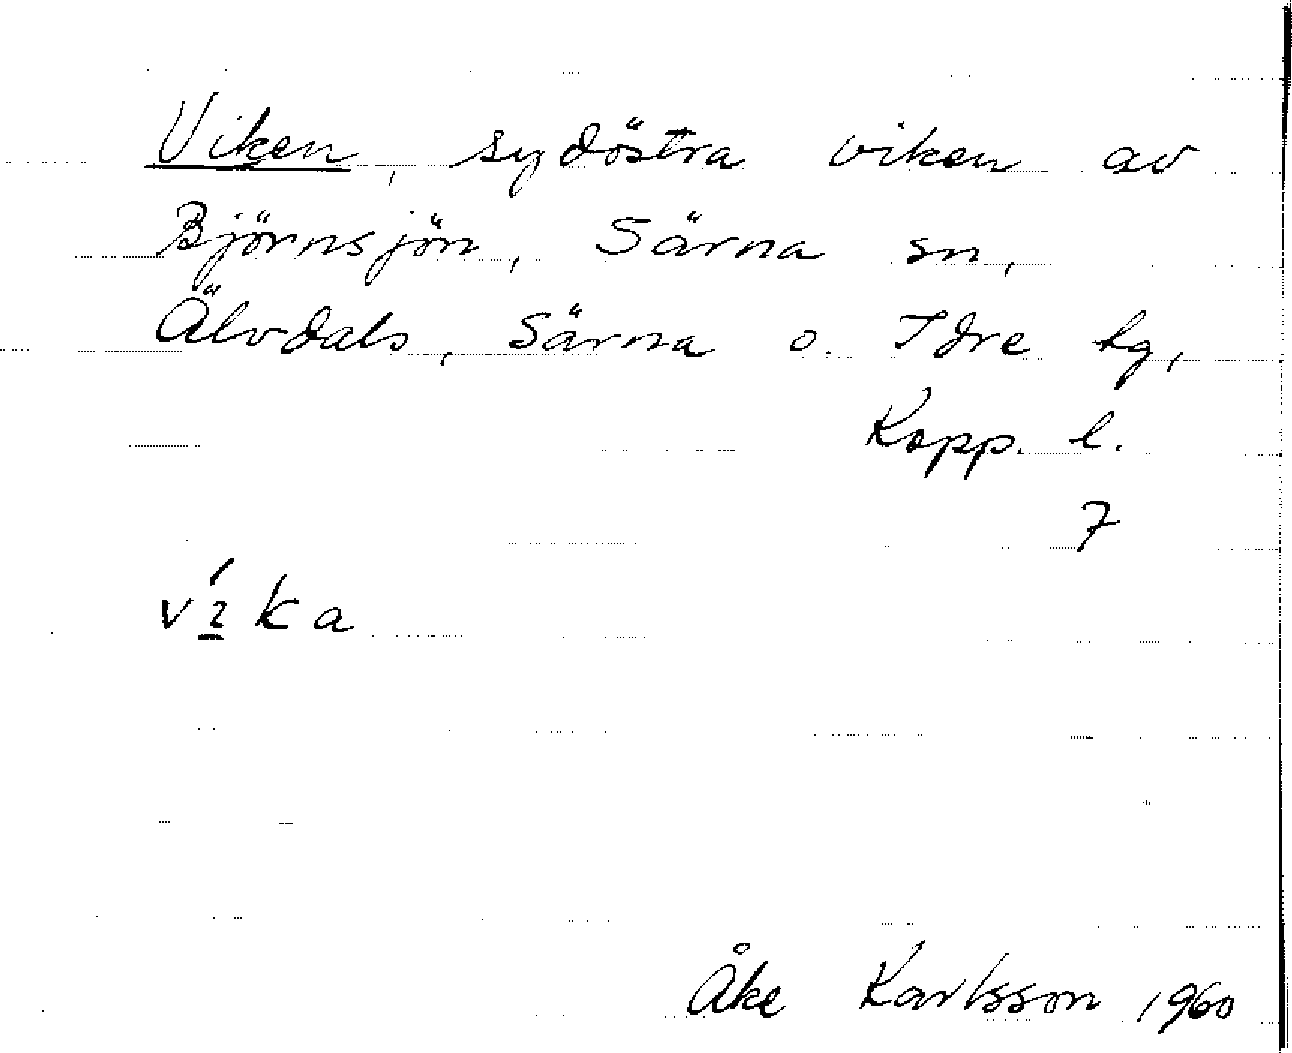 Viken, sydöstra viken av
Björnsjön, Särna sn,
Älvdals, Särna o. Idre tg,
Kopp. l.
7
víka
Åke Karlsson 1960